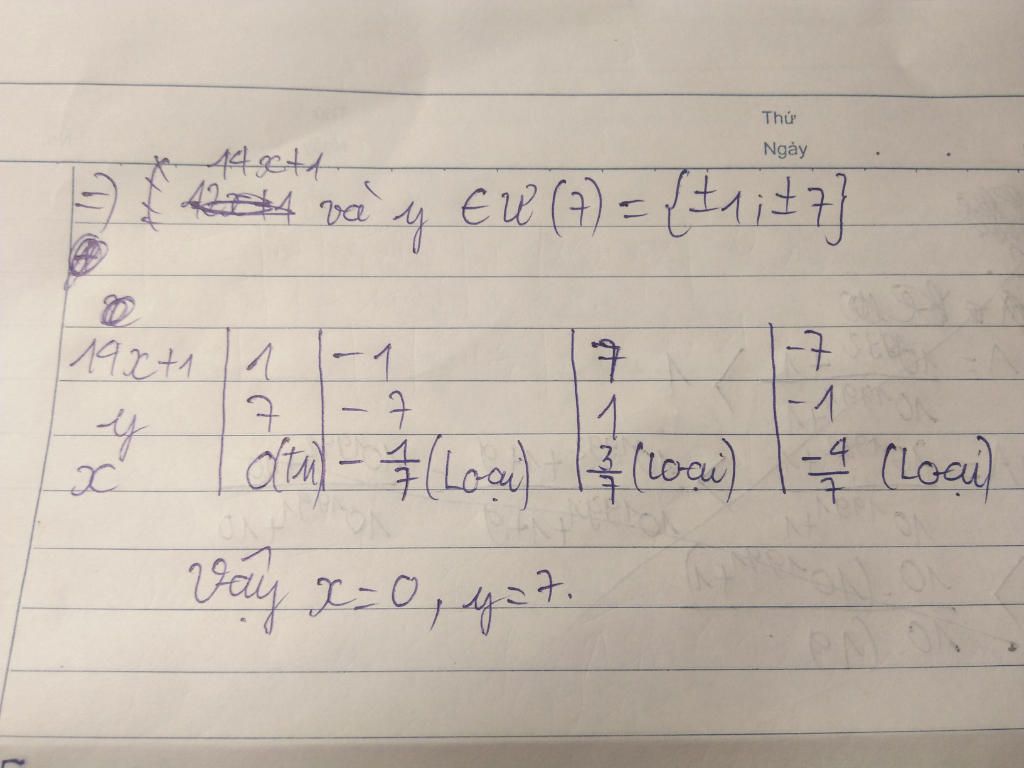 Thứ
Ngày
14x+1
=) và y ∈ Ư(7) = {±1; ±7}
14x+1 | 1 | -1 | 7 | -7
y | 7 | -7 | 1 | -1
x | 0(tm) | -1/7 (Loại) | 3/7 (Loại) | -4/7 (Loại)
Vậy x=0, y=7.